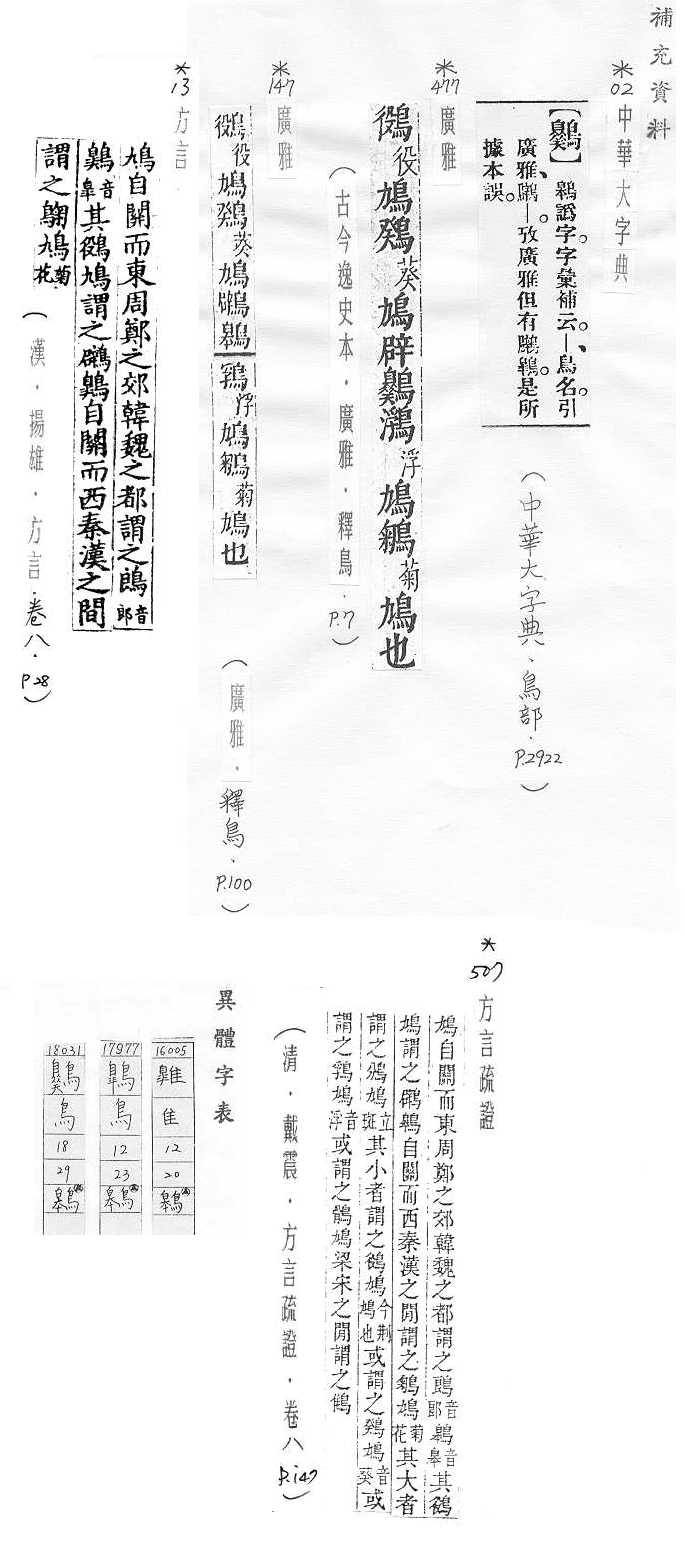 補充資料
*02 中華大字典
鷎譌字字彙補云。—鳥名。引
廣雅、鷿—。攷廣雅但有鷿鷎。是所
據本誤。
(中華大字典、鳥部.P.2922)
*477 廣雅
役鳩葵鳩辟浮鳩菊鳩也
(古今逸史本.廣雅.釋鳥.P.7)
*147 廣雅
役鳩葵鳩浮鳩菊鳩也
(廣雅.釋鳥、P.100)
*13 方言
鳩自關而東周鄭之郊韓魏之都謂之音郎
音皐其鳩謂之自關而西秦漢之間
謂之鳩菊花
(漢.揚雄.方言.卷八.P.28)
*507 方言疏證
鳩自關而東周鄭之郊韓魏之都謂之音郎音皋其
鳩謂之自關而西秦漢之閒謂之鳩菊花其大者
謂之鳩音斑其小者謂之鳩今荆鳩也或謂之鳩音葵或
謂之鳩音浮或謂之鶻鳩梁宋之閒謂之
(清.戴震.方言疏證.卷八P.147)
異體字表
16005
隹
12
20
17977
鳥
12
23
18031
鳥
18
29